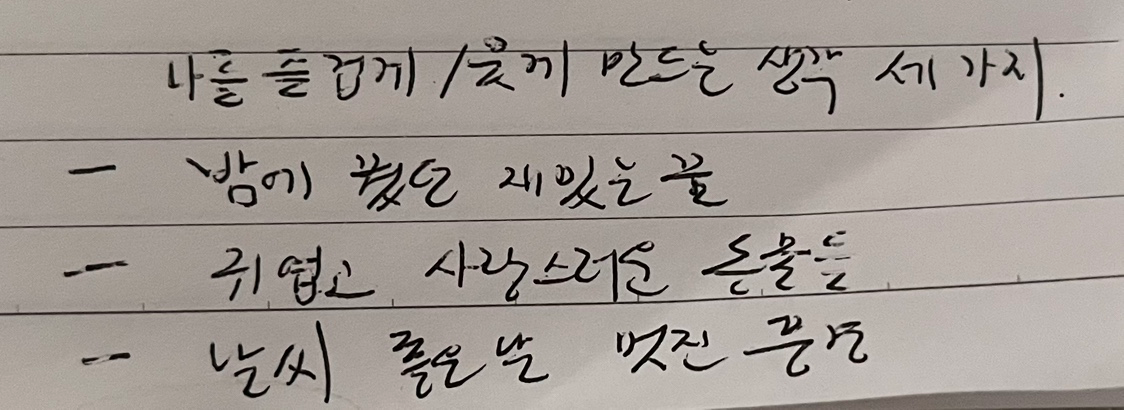 나를 즐겁게/웃게 만드는 생각 세 가지.
- 밤에 꿨던 재밌는 꿈
- 귀엽고 사랑스러운 동물들
- 날씨 좋은 날 멋진 풍경